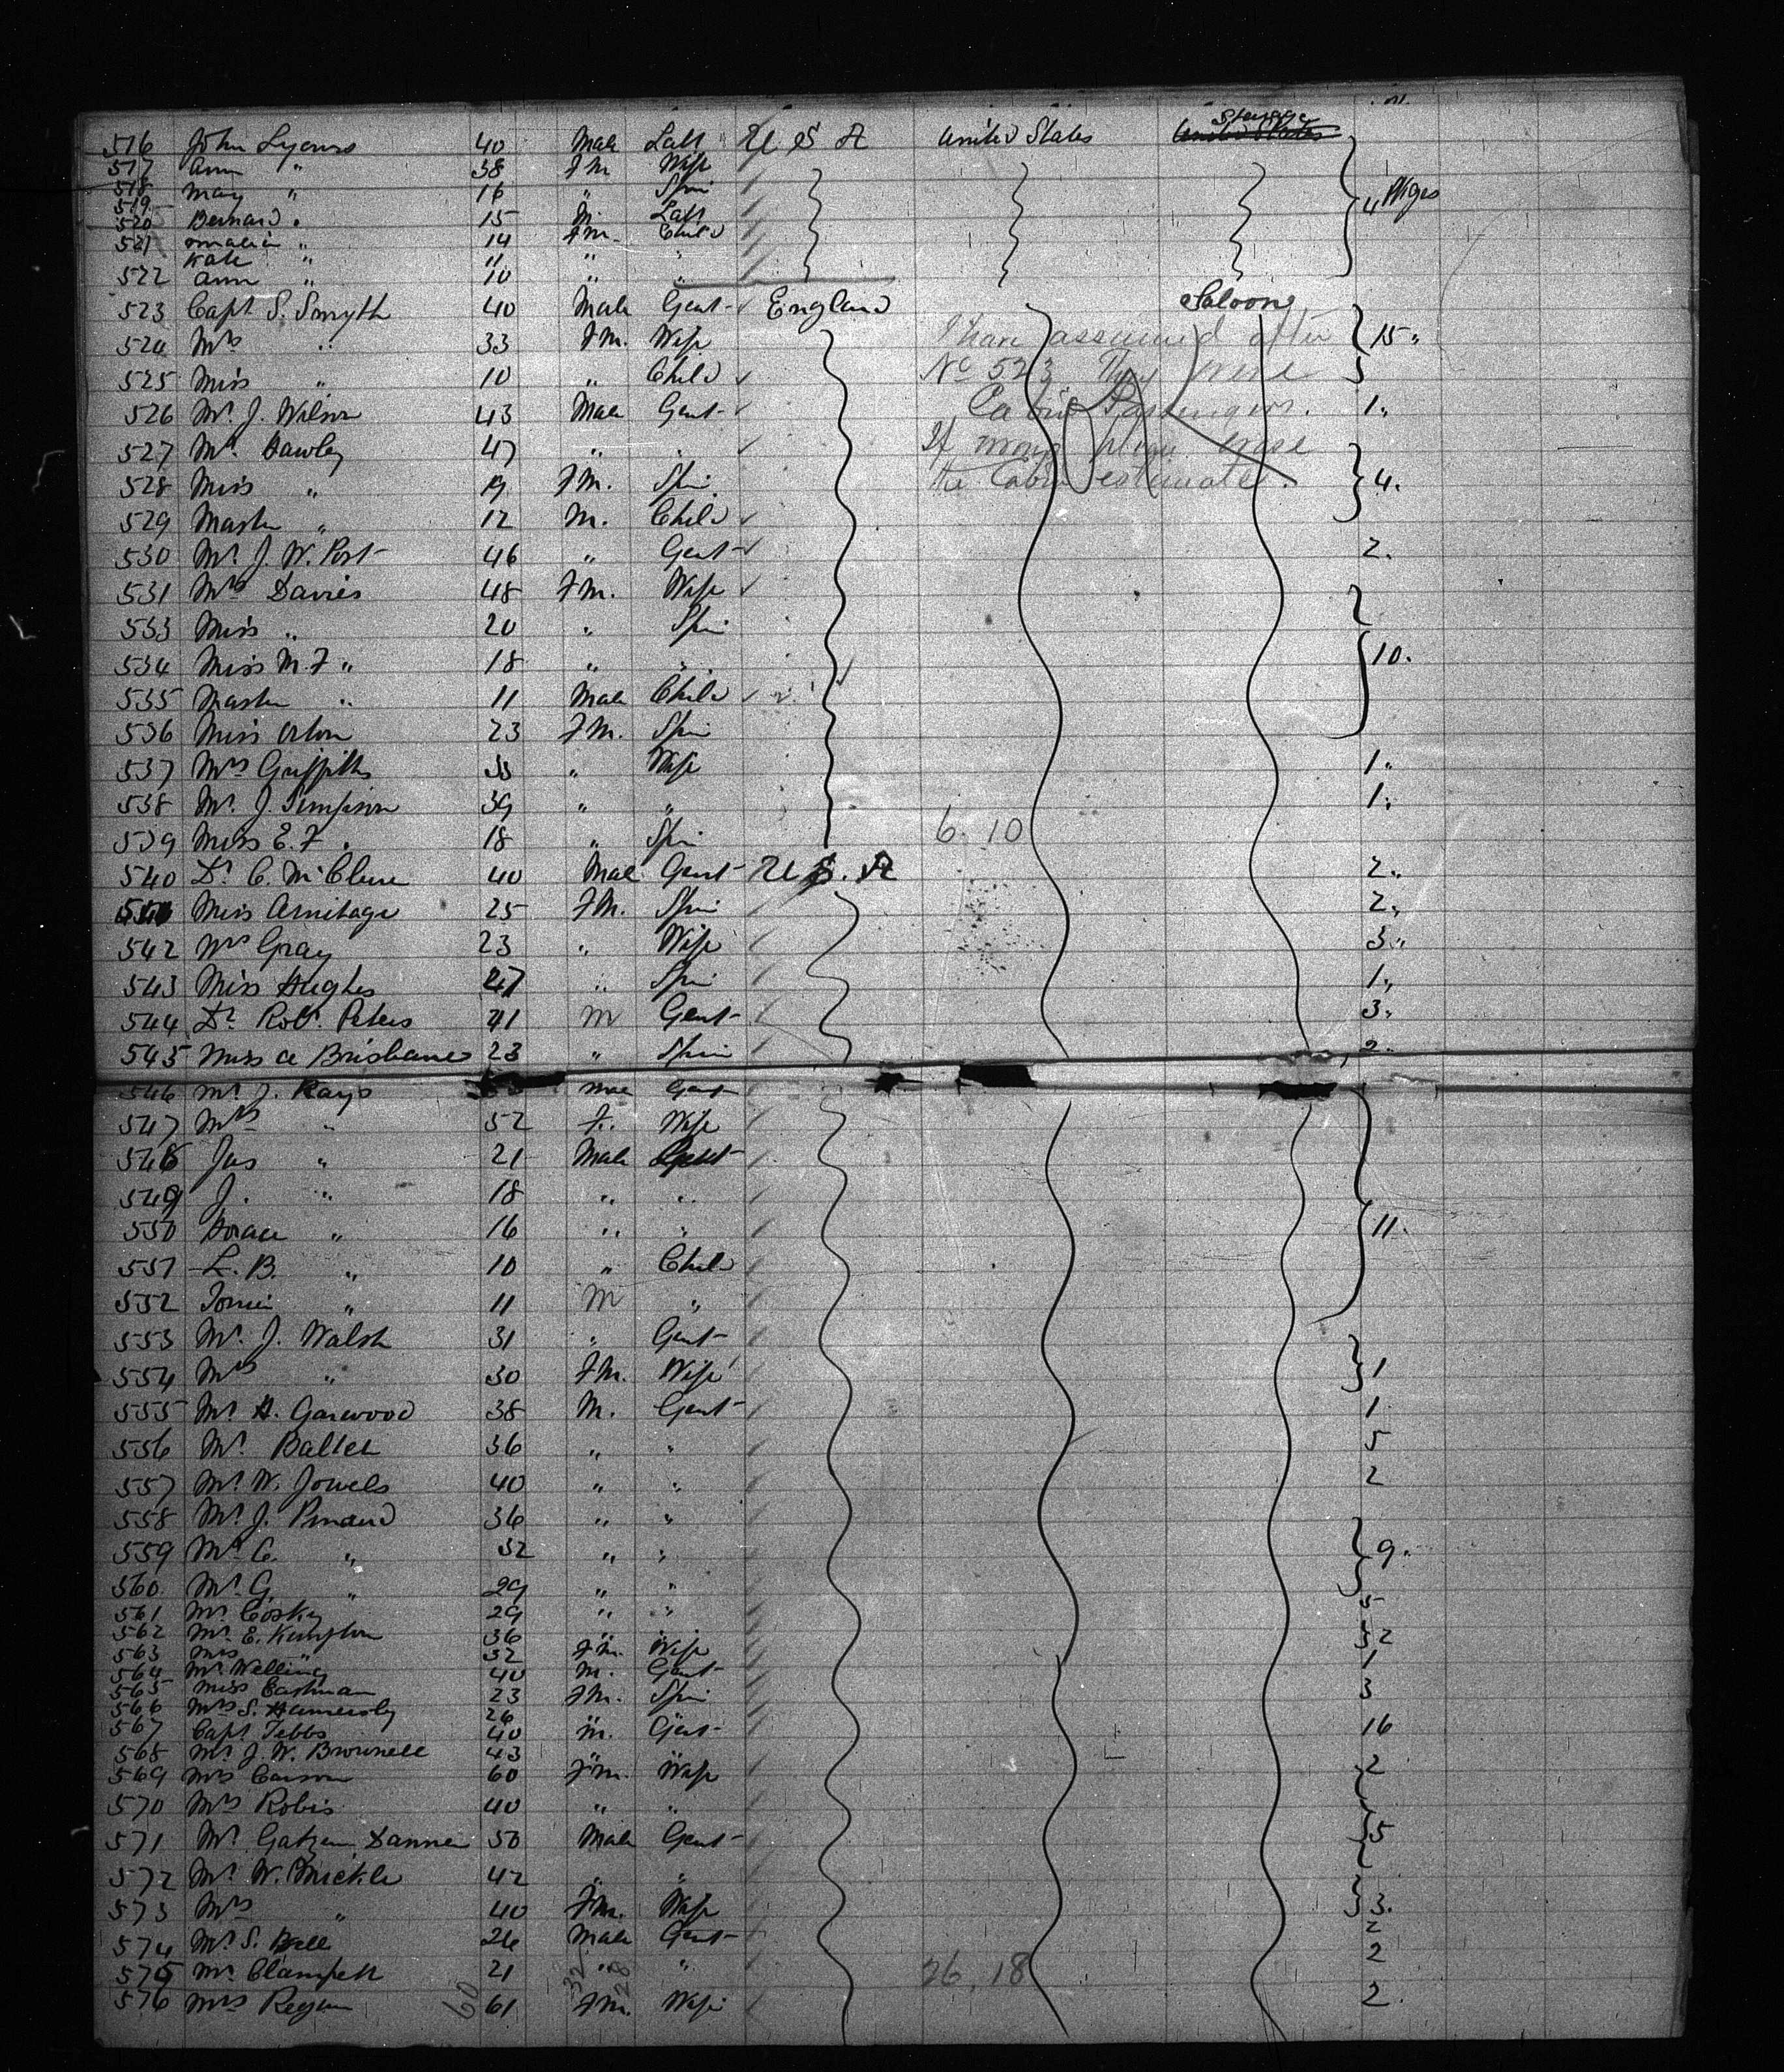 Steerage
516 John Lyons 40 Male Labr U S A United States United States
517 Ann " 38 Fm Wife
518 May " 16 " Spin 4 Pkges
519
520 Bernard " 15 M. Labr
521 " 14 Fm. Child
Kate " 11 " "
522 Ann " 10 " "
523 Capt. S. Smyth 40 Male Gent England Saloon
524 Mrs " 33 Fm. Wife 15 "
I have assumed after
525 Miss " 10 " Child
No 523 They were
526 Mr. J. Wilson 43 Male Gent 1 "
Cabin Passengers.
527 Mr. Hawley 47 " "
If wrong please erase
528 Miss " 19 Fm. Spin 4.
the Cabin estimate.
529 Master " 12 M. Child
530 Mr. J. W. Port 46 " Gent 2.
531 Mrs Davies 48 Fm. Wife
533 Miss " 20 " Spin
534 Miss M. F " 18 " " 10.
535 Master " 11 Male Child
536 Miss Orton 23 Fm. Spin
537 Mrs Griffiths 33 " Wife 1 "
538 Mr. J. Simpson 39 " " 1 "
539 Miss E. F " 18 " Spin 6. 10
540 Dr. C. McClure 40 Male Gent U S. A 2 "
541 Miss Armitage 25 Fm. Spin 2 "
542 Mrs Gray 23 " Wife 3 "
543 Miss Hughes 27 " Spin 1 "
544 Dr. Robt. Peters 41 M Gent 3 "
545 Miss A Brisbane 23 " Spin 2 "
546 Mr. J. Kays Male Gent
547 Mrs " 52 F. Wife
548 Jas " 21 Male Gent
549 J. " 18 " "
550 Horace " 16 " " 11.
551 L. B. " 10 " Child
552 " 11 M "
553 Mr. J. Walsh 31 " Gent
554 Mrs " 30 Fm. Wife 1
555 Mr H. Garwood 38 M. Gent 1
556 Mr. 36 " " 5
557 Mr. W. Jowels 40 " " 2
558 Mr. J. Pinaud 36 " "
559 Mr C. " 32 " " 9.
560 Mr. G. " 29 " "
561 Mr Cosky 29 " " 5
562 Mr. E. Kempton 36 " " 2
563 Mrs " 32 Fm. Wife
564 Mr Welling 40 M. Gent 1
565 Miss Eastman 23 Fm. Spin 3
566 Mrs S. Hamersly 26 " "
567 Capt Tebbs 40 M. Gent 16
568 Mr. J. W. Brownell 43 " "
569 Mrs Carson 60 Fm. Wife 2
570 Mrs Robis 40 " "
571 Mr. Danner 50 Male Gent 5
572 Mr. W. Mickle 42 " "
573 Mrs " 40 Fm. Wife 3.
574 Mr. S. Bell 26 Male Gent 2
2
575 Mr. Clampett 21 " " 26. 18
576 Mrs Regan 61 Fm. Wife 2.
60 32 28